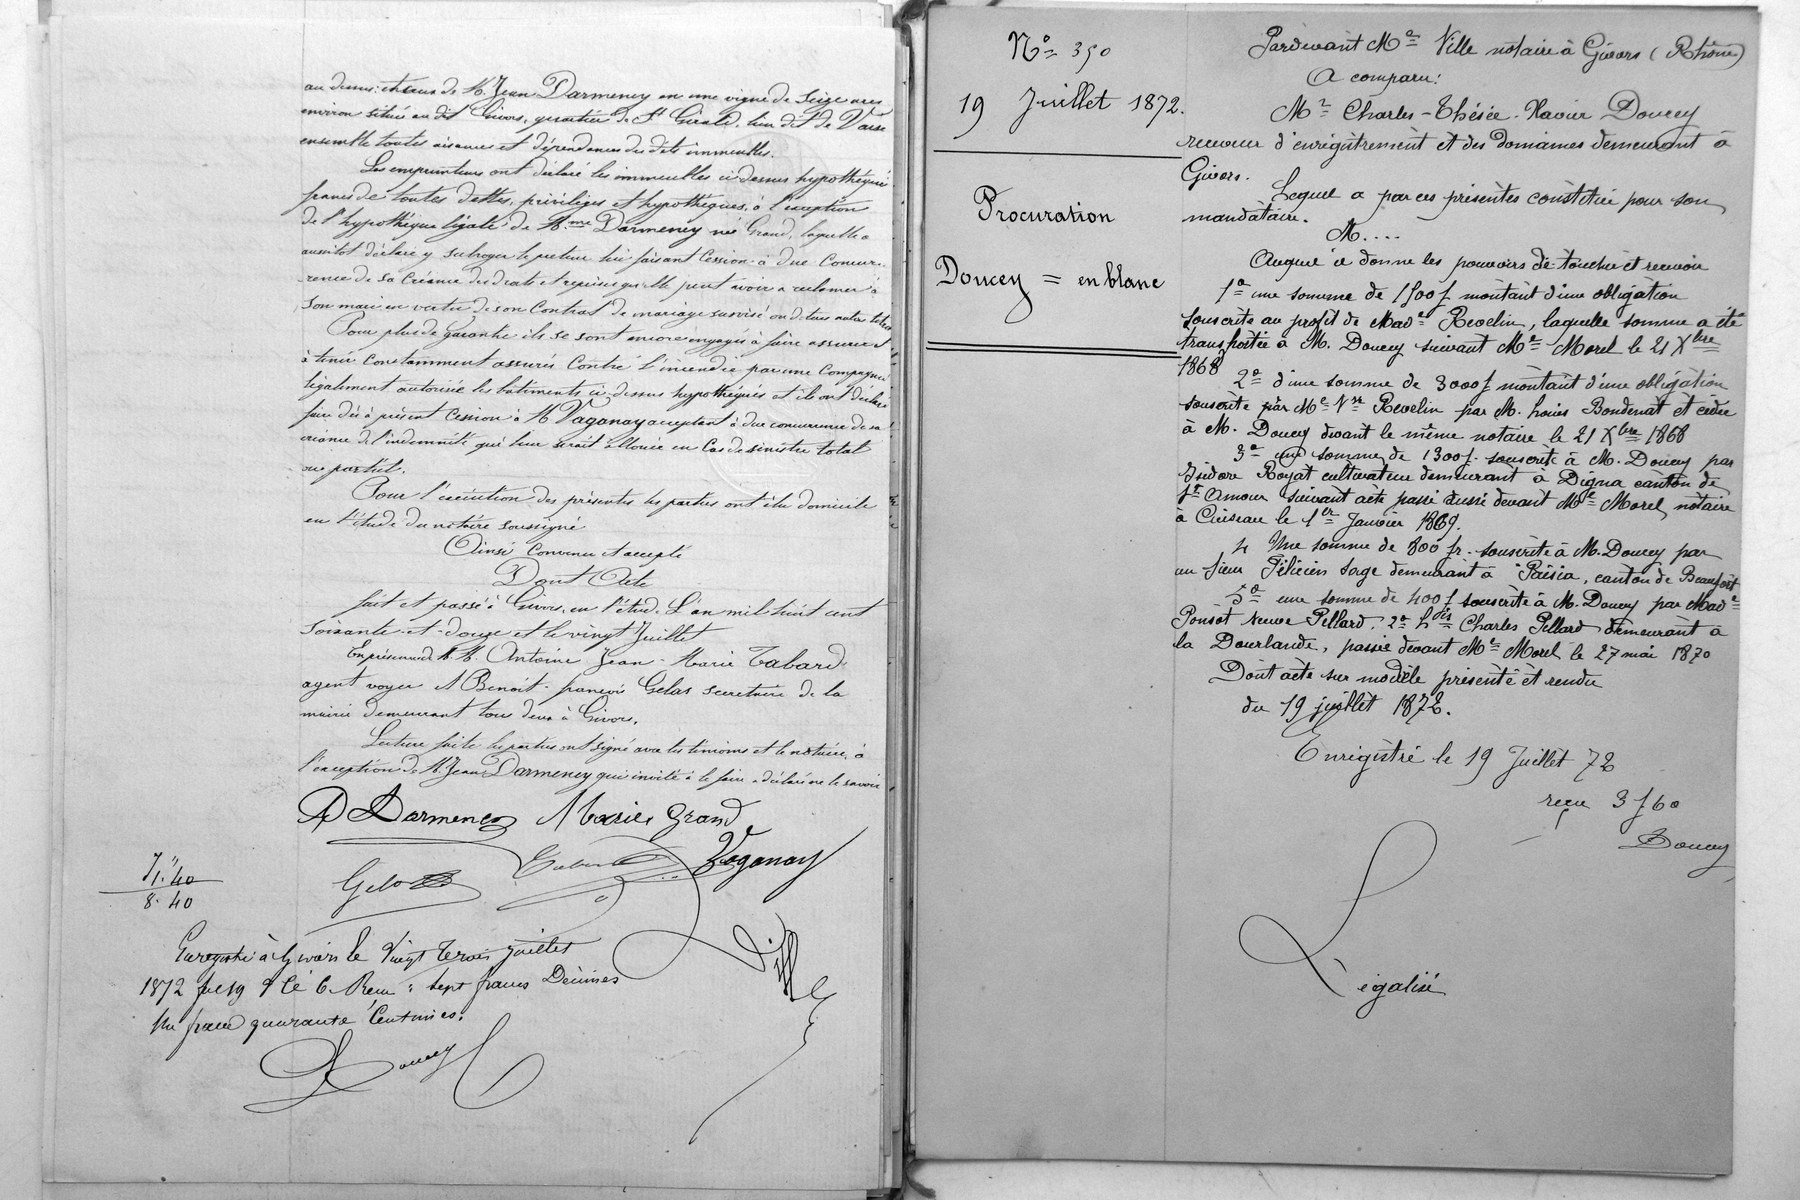 au dessus: et ceux de M. Jean Darmency en une vigne de seize ares
environ située au dit Givors, quartier de St Gérald, lieu dit de Varse
ensemble toutes aisances et dépendances des dits immeubles.
Les emprunteurs ont déclaré les immeubles ci-dessus hypothéqués
francs de toutes dettes, privilèges et hypothèques, à l'exception
de l'hypothèque légale de Mme Darmency née Grand, laquelle a
aussitôt déclaré y subroger le prêteur lui faisant Cession à due Concur-
rence de sa Créance des droits et reprises qu'elle peut avoir à réclamer à
son mari en vertu de son Contrat de mariage susvisé ou de tous autres titres
Pour plus de garantie ils se sont encore engagés à faire assurer et
à tenir Constamment assurés Contre l'incendie par une Compagnie
légalement autorisée les bâtiments ci-dessus hypothéqués et ils ont déclaré
faire dès à présent Cession à M. Vaganay acceptant à due concurrence de sa
créance de l'indemnité qui leur serait allouée en Cas de sinistre total
ou partiel.
Pour l'exécution des présentes les parties ont élu domicile
en l'étude du notaire soussigné
Ainsi Convenu et accepté
Dont Acte
fait et passé à Givors, en l'étude. L'an mil huit cent
soixante-et-douze et le vingt Juillet
En présence de M.M. Antoine Jean-Marie Tabard
agent voyer et Benoit-françois Gelas secrétaire de la
mairie demeurant tous deux à Givors.
Lecture faite les parties ont signé avec les témoins et le notaire, à
l'exception de M. Jean Darmency qui invité à le faire a déclaré ne le savoir
Darmency Marie Grand
Gelas Tabard Vaganay
7.
1.40
8.40
Ville
Enregistré à Givors le Vingt trois juillet
1872 fol 19 Vo Cé 6 Reçu: sept francs Décimes
Un franc quarante Centimes.
Doucey
No 350
19 Juillet 1872.
Procuration
Doucey = en blanc
Pardevant Me Ville notaire à Givors (Rhône)
A comparu:
Mr Charles-Thésée-Xavier Doucey
receveur d'enregistrement et des domaines demeurant à
Givors.
Lequel a par ces présentes constitué pour son
mandataire.
M....
Auquel il donne les pouvoirs de toucher et recevoir
1o une somme de 1500f montant d'une obligation
souscrite au profit de Made Revelin, laquelle somme a été
transportée à M. Doucey suivant Me Morel le 21 Xbre
1868
2o d'une somme de 3000f montant d'une obligation
souscrite par Me Vve Revelin par M. Louis Bondenat et cédée
à M. Doucey devant le même notaire le 21 Xbre 1868
3o une somme de 1300f. souscrite à M. Doucey par
Isidore Royat cultivateur demeurant à Digna canton de
St Amour suivant acte passé aussi devant Me Morel, notaire
à Cuiseau le 1er Janvier 1869.
4 Une somme de 800 fr. souscrite à M. Doucey par
un sieur Félicien Sage demeurant à Paisia, canton de Beaufort
5o une somme de 400f souscrite à M. Doucey par Made
Ponsot veuve Pellard 2o Lis Charles Pellard demeurant à
la Dourlande, passée devant Me Morel le 27 mai 1870
Dont acte sur modèle présenté et rendu
du 19 juillet 1872.
Enregistré le 19 Juillet 72
reçu 3f60
Doucey
Légalisé